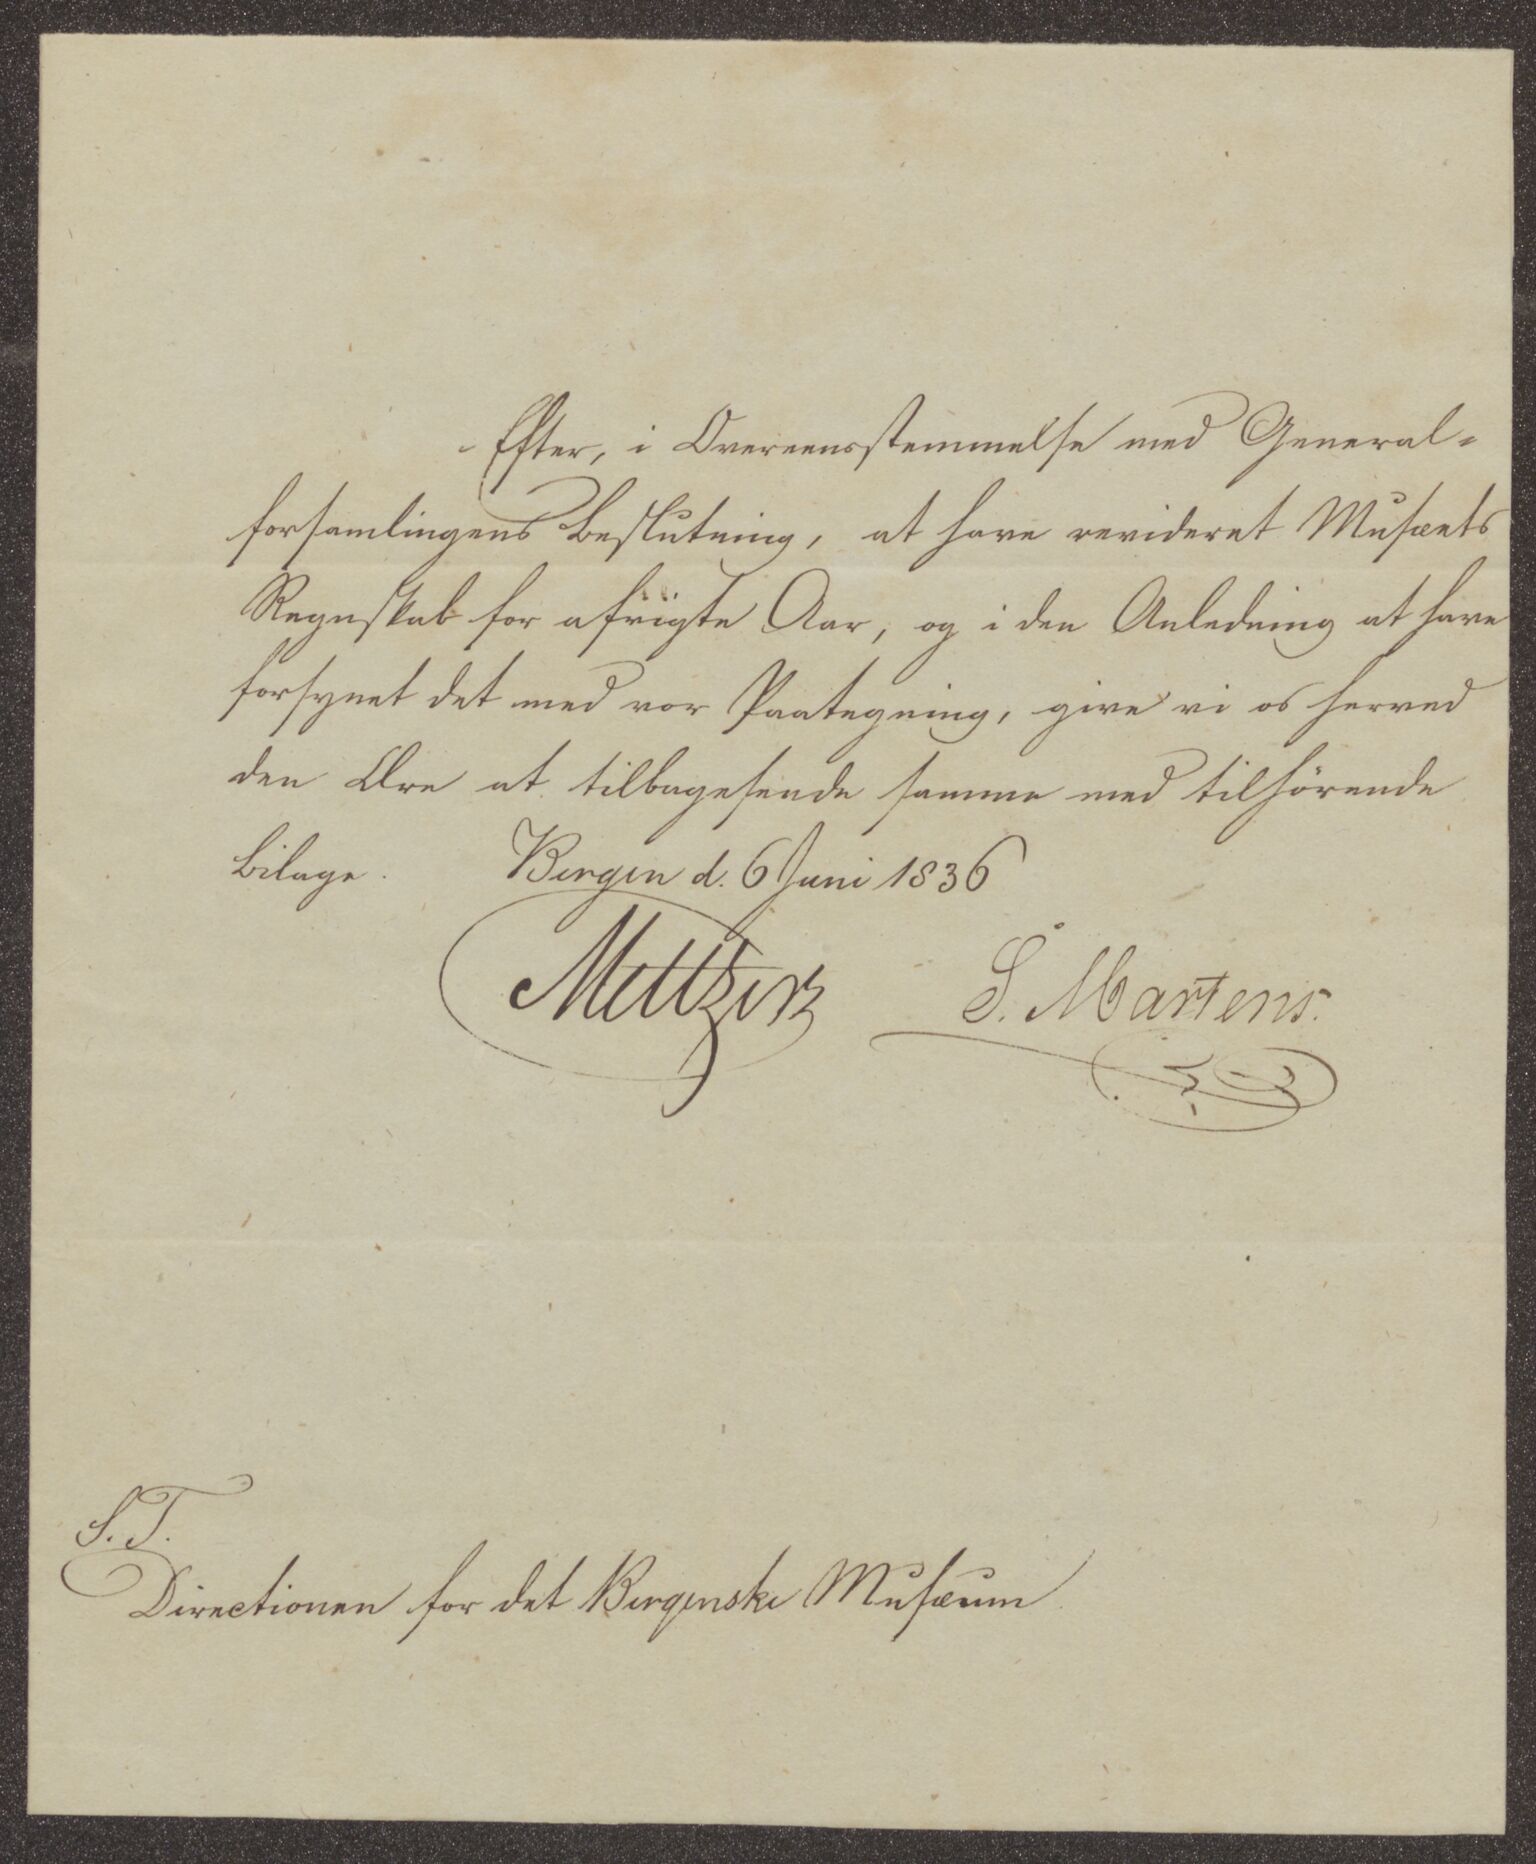 Efter, i Overeensstemmelse med General-
forsamlingens Beslutning, at have revideret Musæets
Regnskab for afvigte Aar, og i den Anledning at have
forsynet det med vor Paategning, give vi os herved
den Ære at tilbagesende samme med tilhörende
Bilage. Bergen d. 6 Juni 1836
S. Martens.
S. T.
Directionen for det Bergenske Musæum